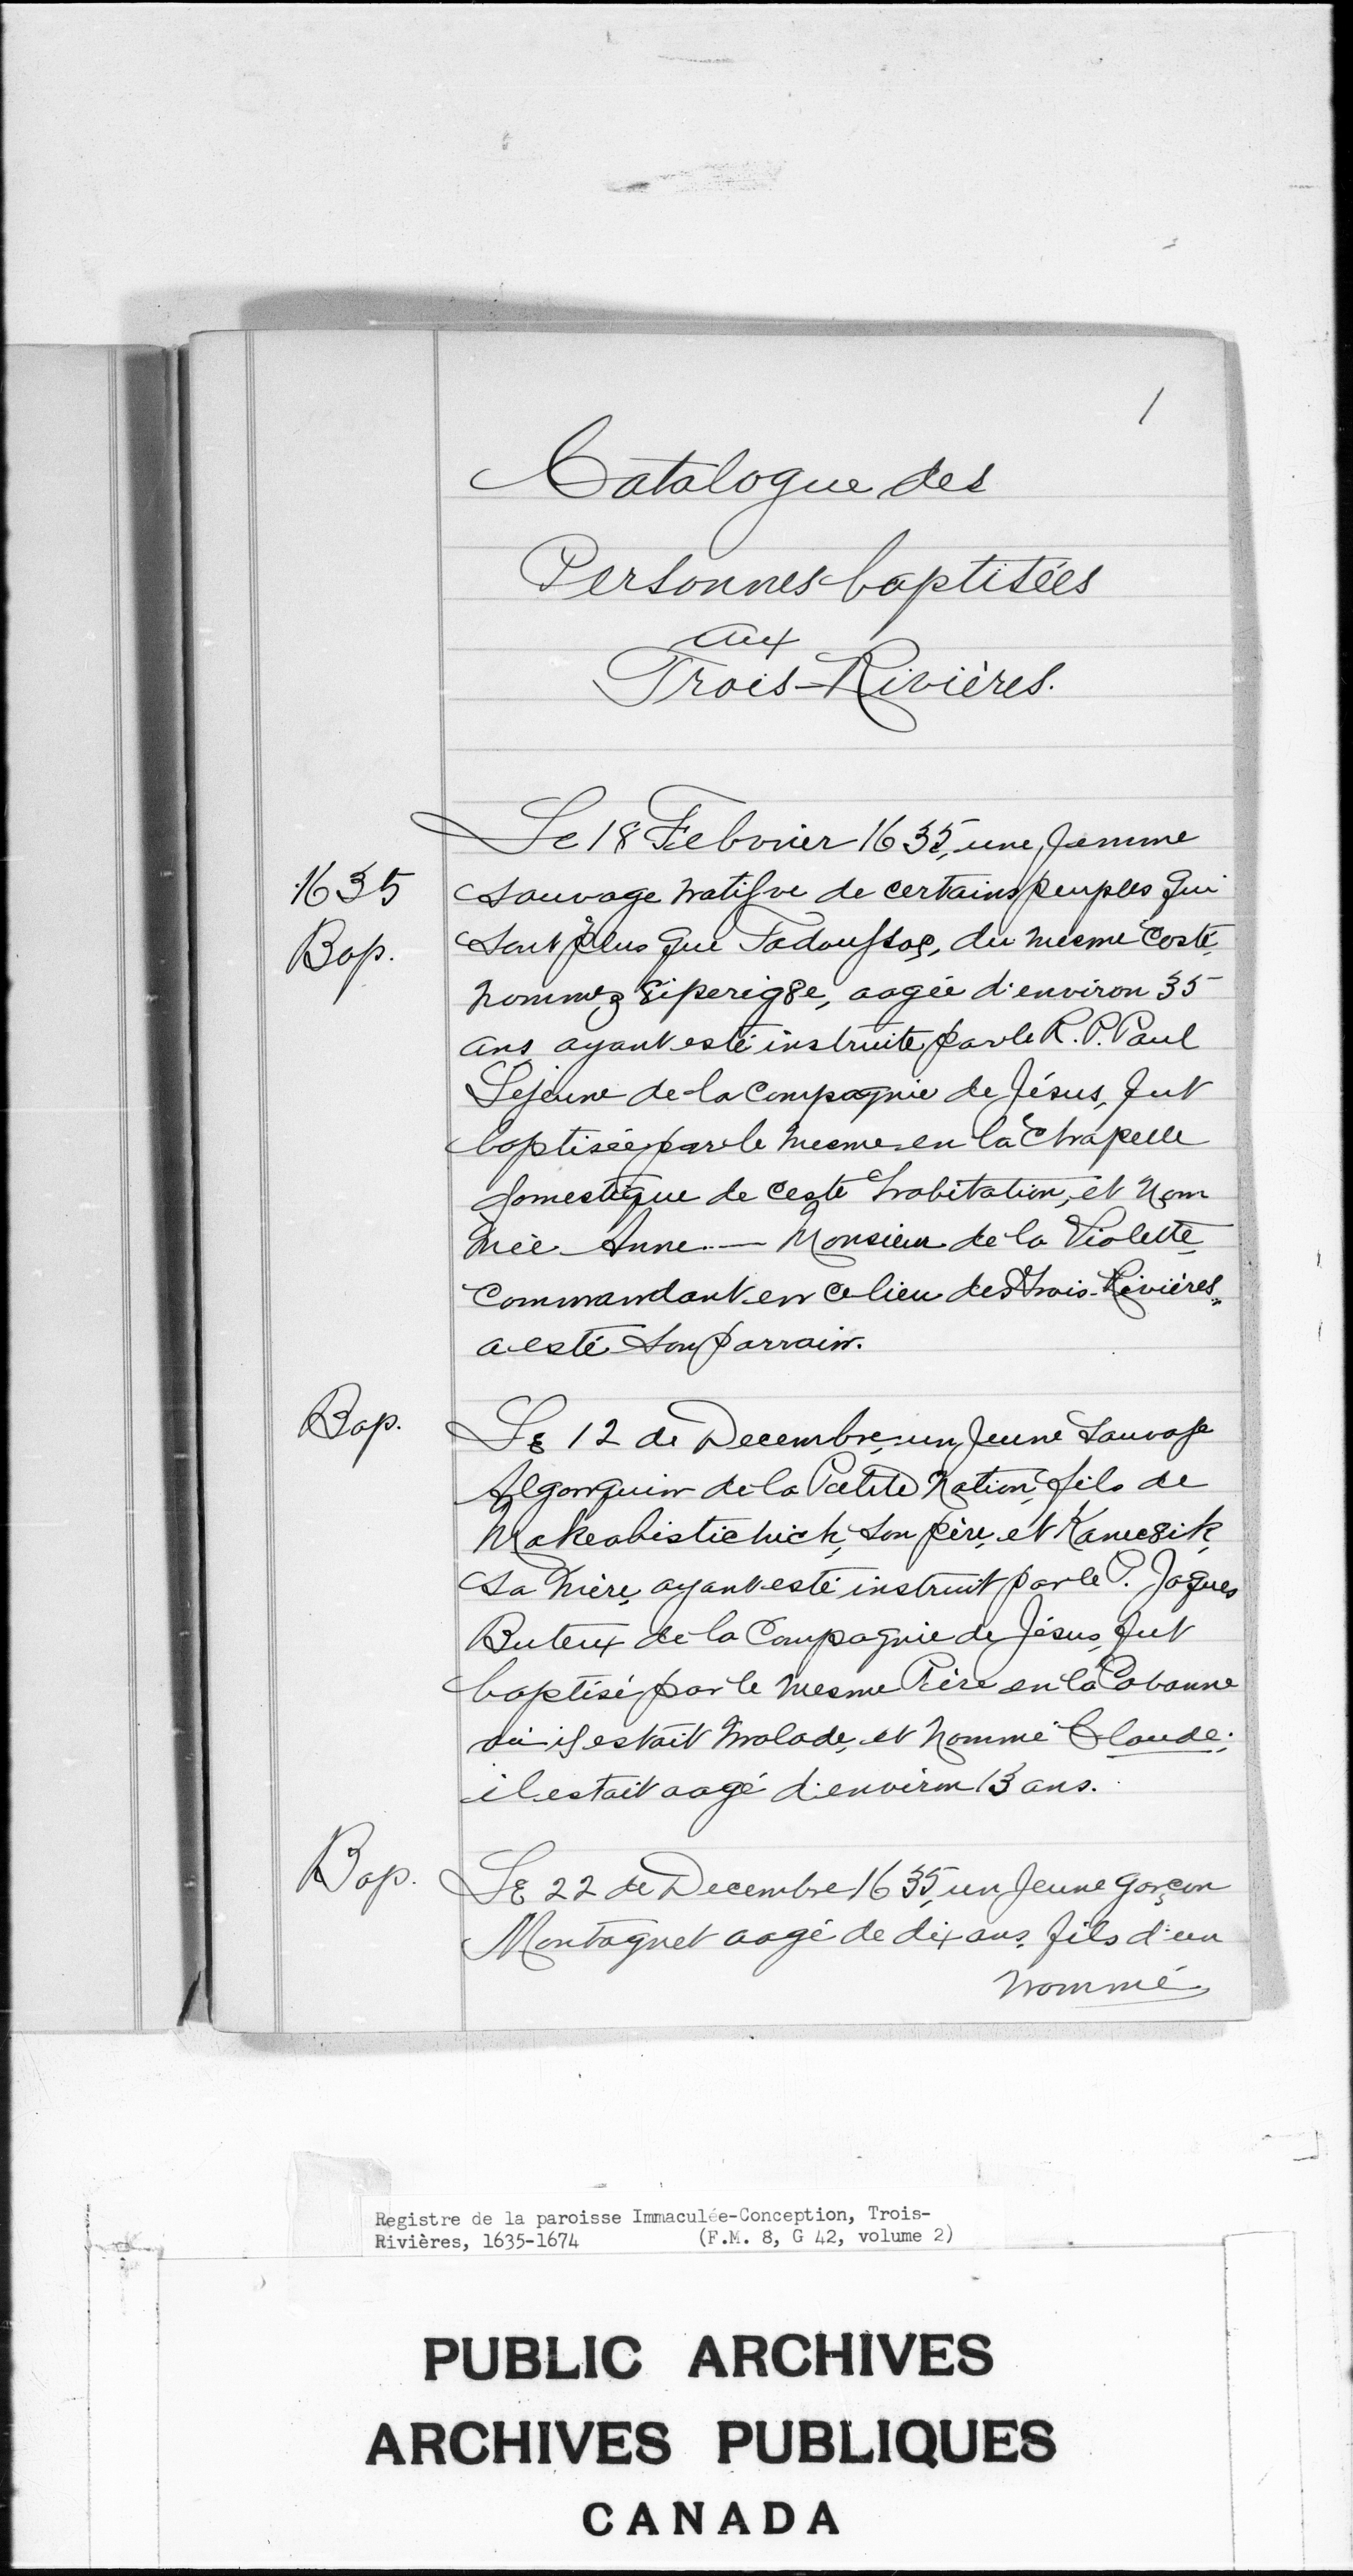 1
Catalogue des
Personnes baptisées
aux
Trois-Rivières.
Le 18 Febvrier 1635, une femme
1635
sauvage natifve de certains peuples qui
Bap.
sont plus que Tadoussac, du mesme costé
nommez 8iperig8e, aagée d'environ 35
ans ayant esté instruite par le R. P. Paul
Lejeune de la Compagnie de Jésus, fut
baptisée par le mesme en la Chapelle
domestique de ceste habitation, et nom
mée Anne — Monsieur de la Violette
Commandant en ce lieu des Trois-Rivières
a esté son parrain.
Bap.
Le 12 de Decembre, un jeune sauvage
Algonquin de la Petite Nation, fils de
Makeabistichich, son père, et Kanec8ik,
sa mère, ayant esté instruit par le P. Jaques
Buteux de la Compagnie de Jésus, fut
baptisé par le mesme Père en la Cabanne
où il estait malade, et nommé Claude;
il estait aagé d'environ 13 ans.
Bap.
Le 22 de Decembre 1635, un jeune garçon
Montagnet aagé de dix ans, fils d'un
nommé
Registre de la paroisse Immaculée-Conception, Trois-
Rivières, 1635-1674 (F.M. 8, G 42, volume 2)
PUBLIC ARCHIVES
ARCHIVES PUBLIQUES
CANADA